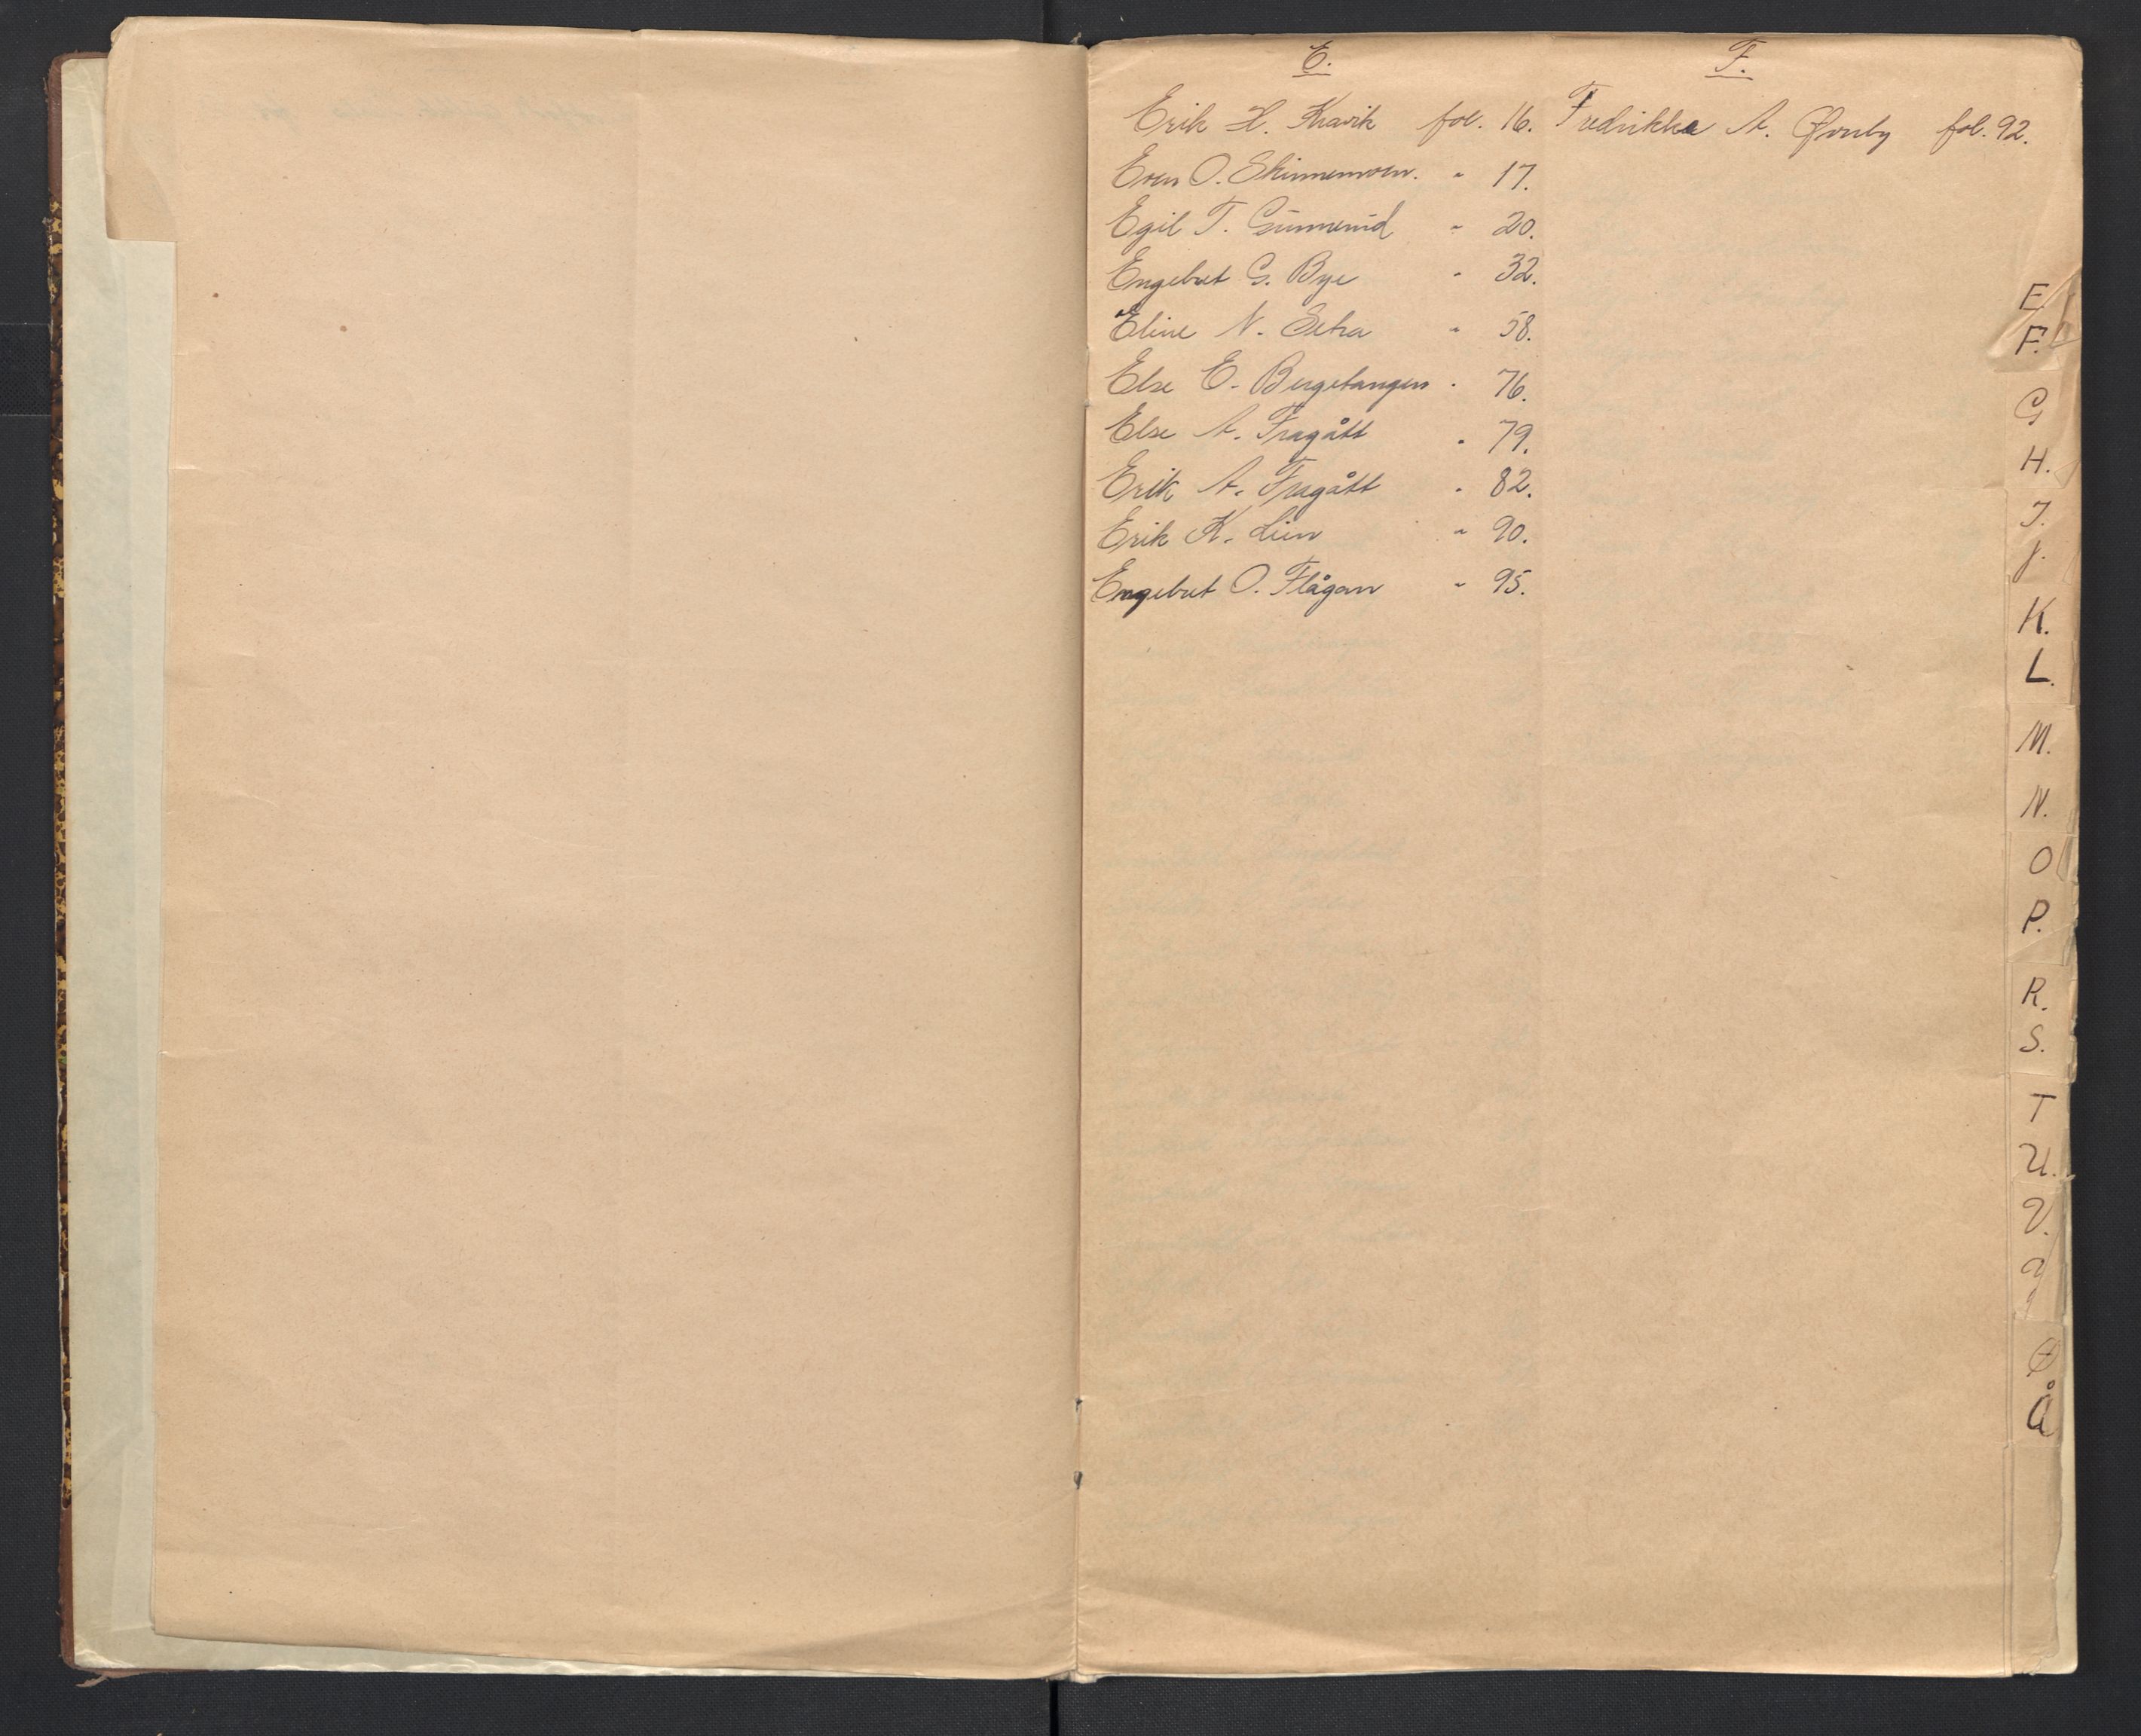 E.
Erik H. Kravik fol. 16.
Even O. Skinnemoen. " 17.
Egil T. Gunnerud " 20.
Engebret G. Bye " 32.
Eline N. Setra " 58.
Else E. Bergetangen " 76.
Else A. Fragått " 79.
Erik A. Fragått " 82.
Erik K. Lien " 90.
Engebret O. Flågan " 95.
F.
Fredrikke A. Ørnby fol. 92.
E.
F.
G
H.
I.
J.
K.
L.
M.
N.
O
P.
R.
S.
T
U.
V.
Y
Ø
Å